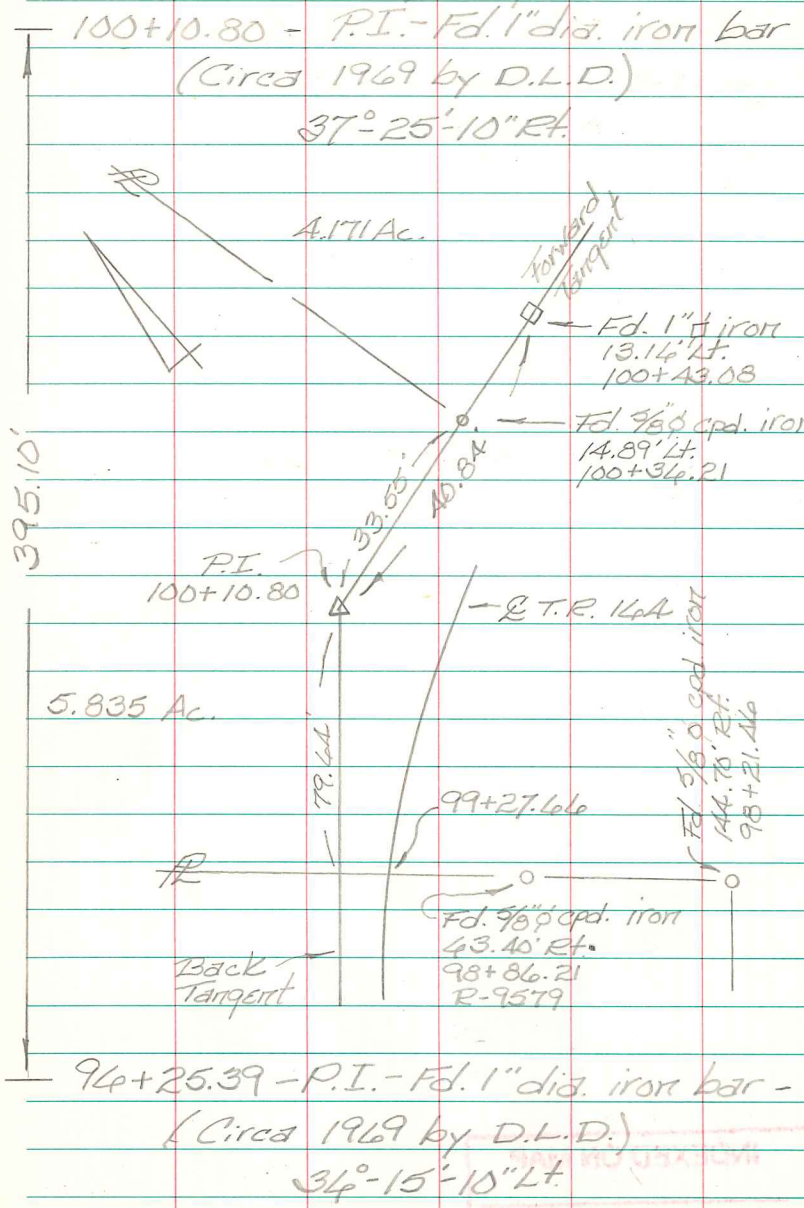 100+10.80 - P.I. - Fd. 1" dia. iron bar
(Circa 1969 by D.L.D.)
37°-25'-10" Rt.
PL
4.171 Ac.
Forward
Tangent
Fd. 1"⌷ iron
13.16' Lt.
100+43.08
Fd. 5/8"ø cpd. iron
14.89' Lt.
100+36.21
395.10'
33.55'
40.84'
P.I.
100+10.80
℄ T.R. 164
5.835 Ac.
79.64'
99+27.66
Fd. 5/8"ø cpd. iron
144.70' Rt.
98+21.46
PL
Fd. 5/8"ø cpd. iron
63.40' Rt.
98+86.21
R-9579
Back
Tangent
96+25.39 - P.I. - Fd. 1" dia. iron bar -
(Circa 1969 by D.L.D.)
36°-15'-10" Lt